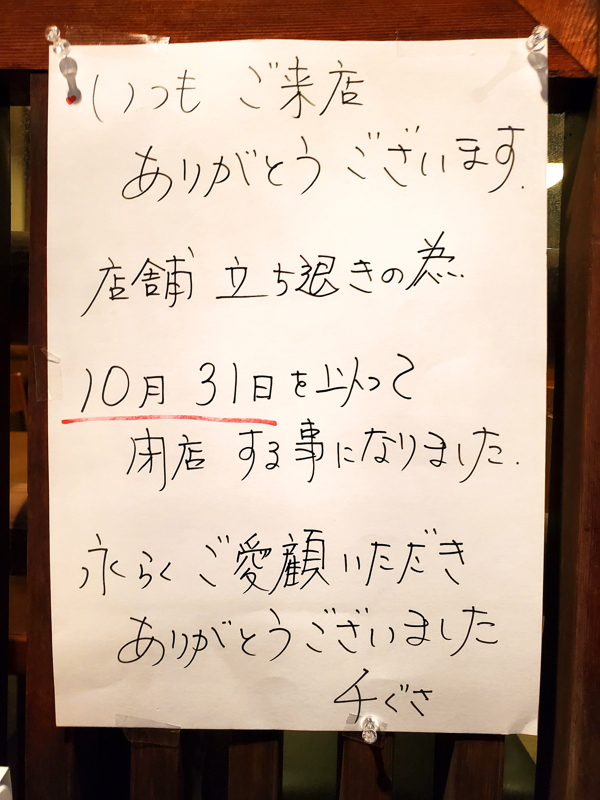 いつも ご来店
ありがとうございます.
店舗 立ち退きの為
10月 31日を以って
閉店 する事になりました.
永らく ご愛顧いただき
ありがとうございました
千ぐさ